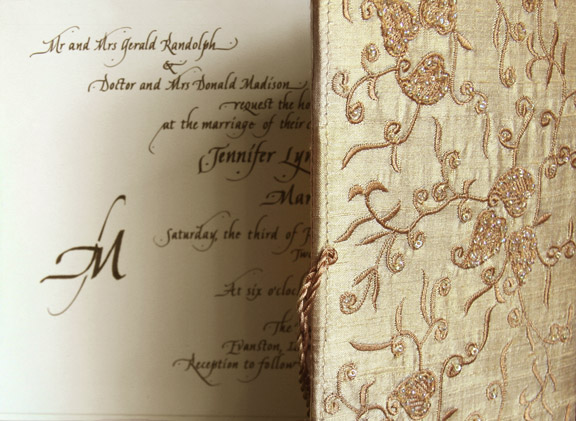 Mr and Mrs Gerald Randolph
&
Doctor and Mrs Donald Madison
request the ho
at the marriage of their c
Jennifer Lyn
Mar
Saturday, the third of J
Tw
M
At six o'cloc
The
Evanston, I
Reception to follow